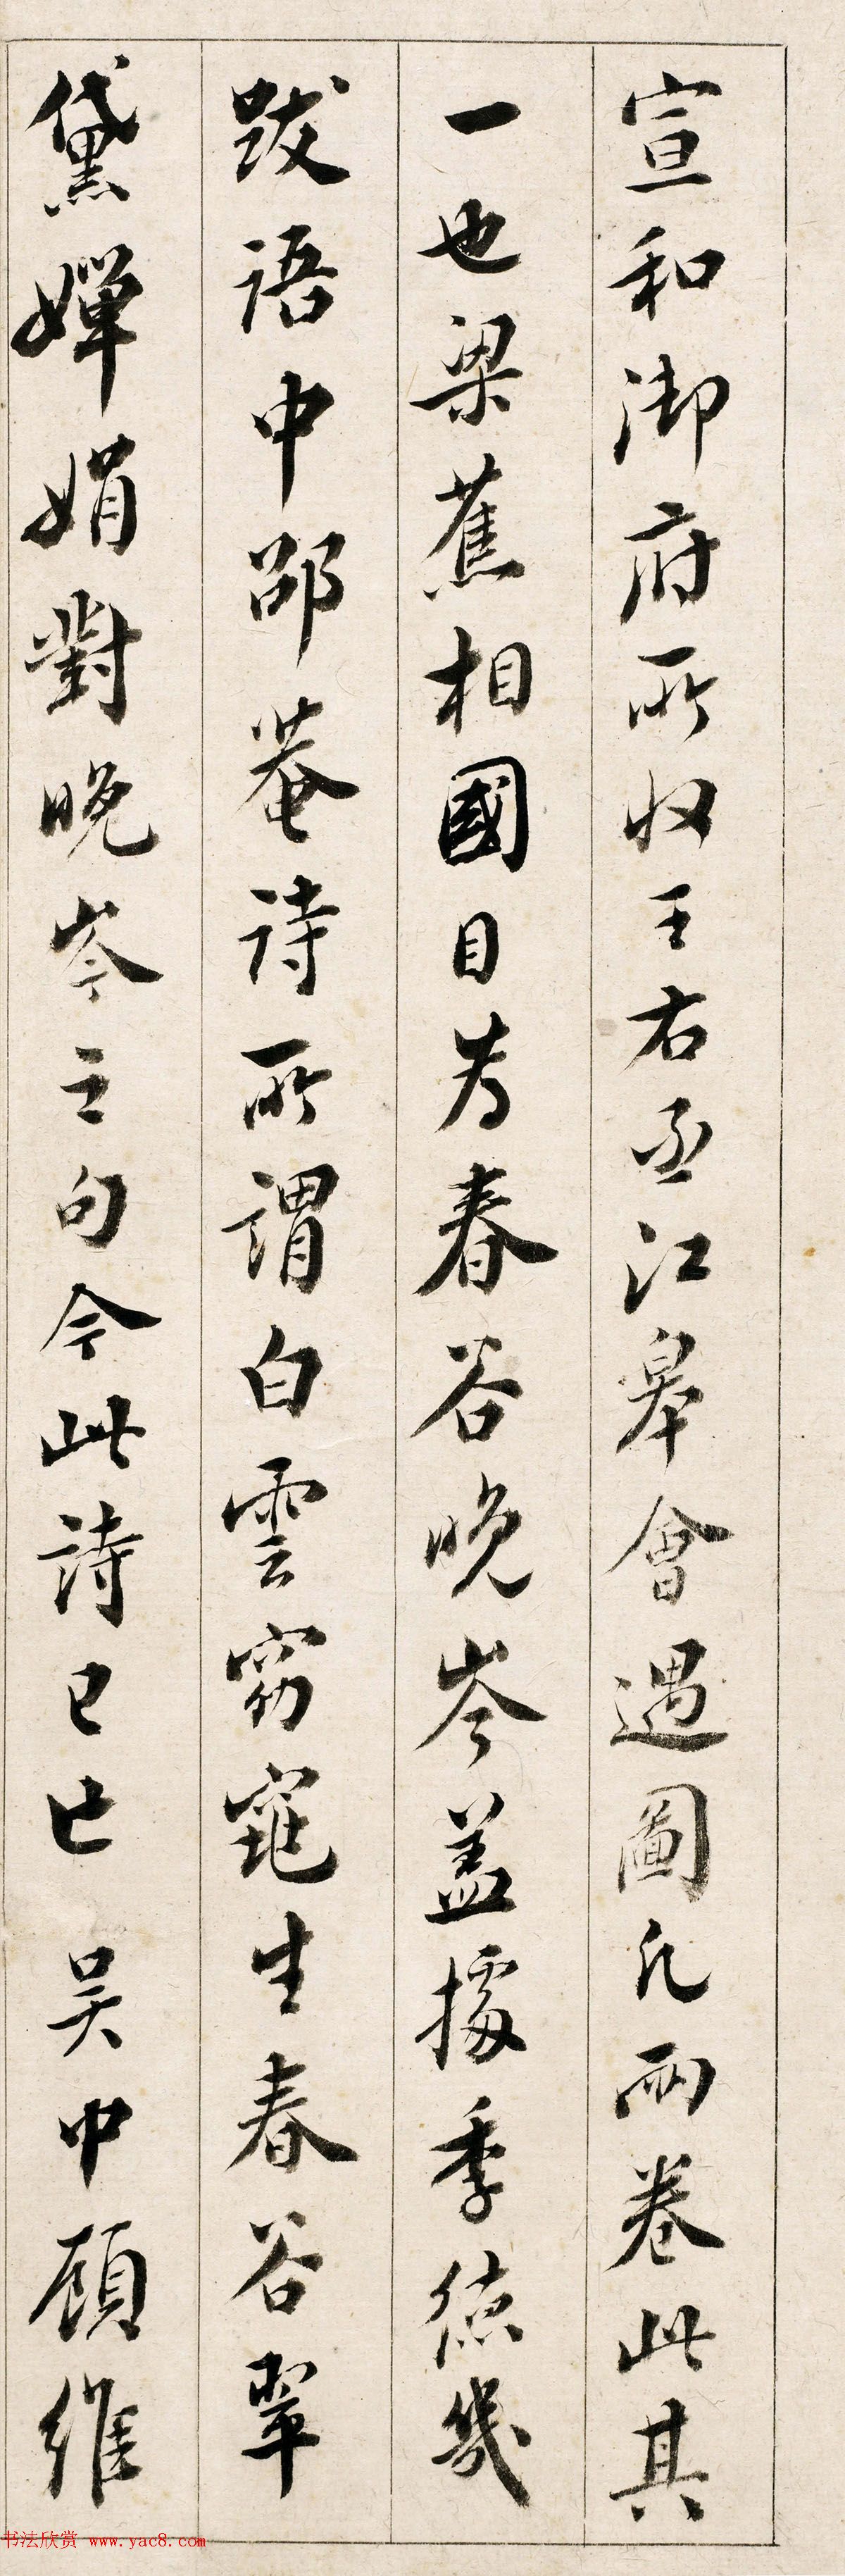 宣和御府所收王右丞江皋會遇圖凡兩卷此其
一也梁蕉相國目為春谷晚岑蓋據季德幾
跋語中邵菴詩所謂白雲窈窕生春谷翠
黛嬋娟對晚岑之句今此詩已亡 吳中顧維
书法欣赏 www.yac8.com